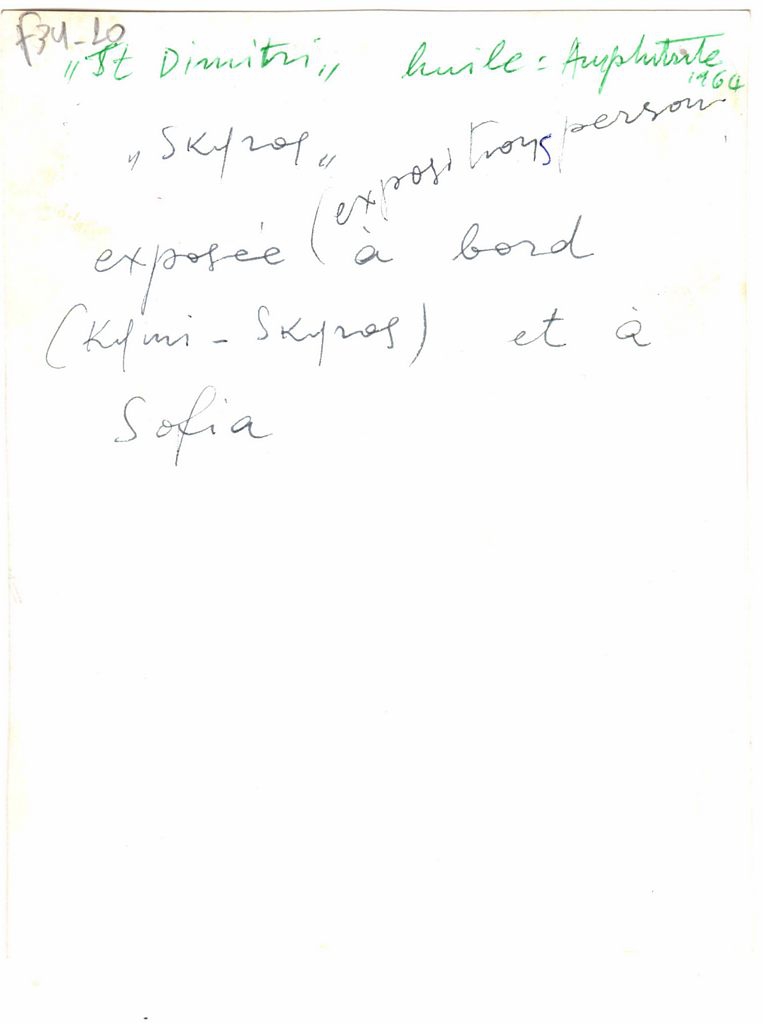 F34-20
"St Dimitri" huile = Amphitrite
1964
"Skyros"
(expositions person
exposée à bord
(Kymi - Skyros) et à
Sofia